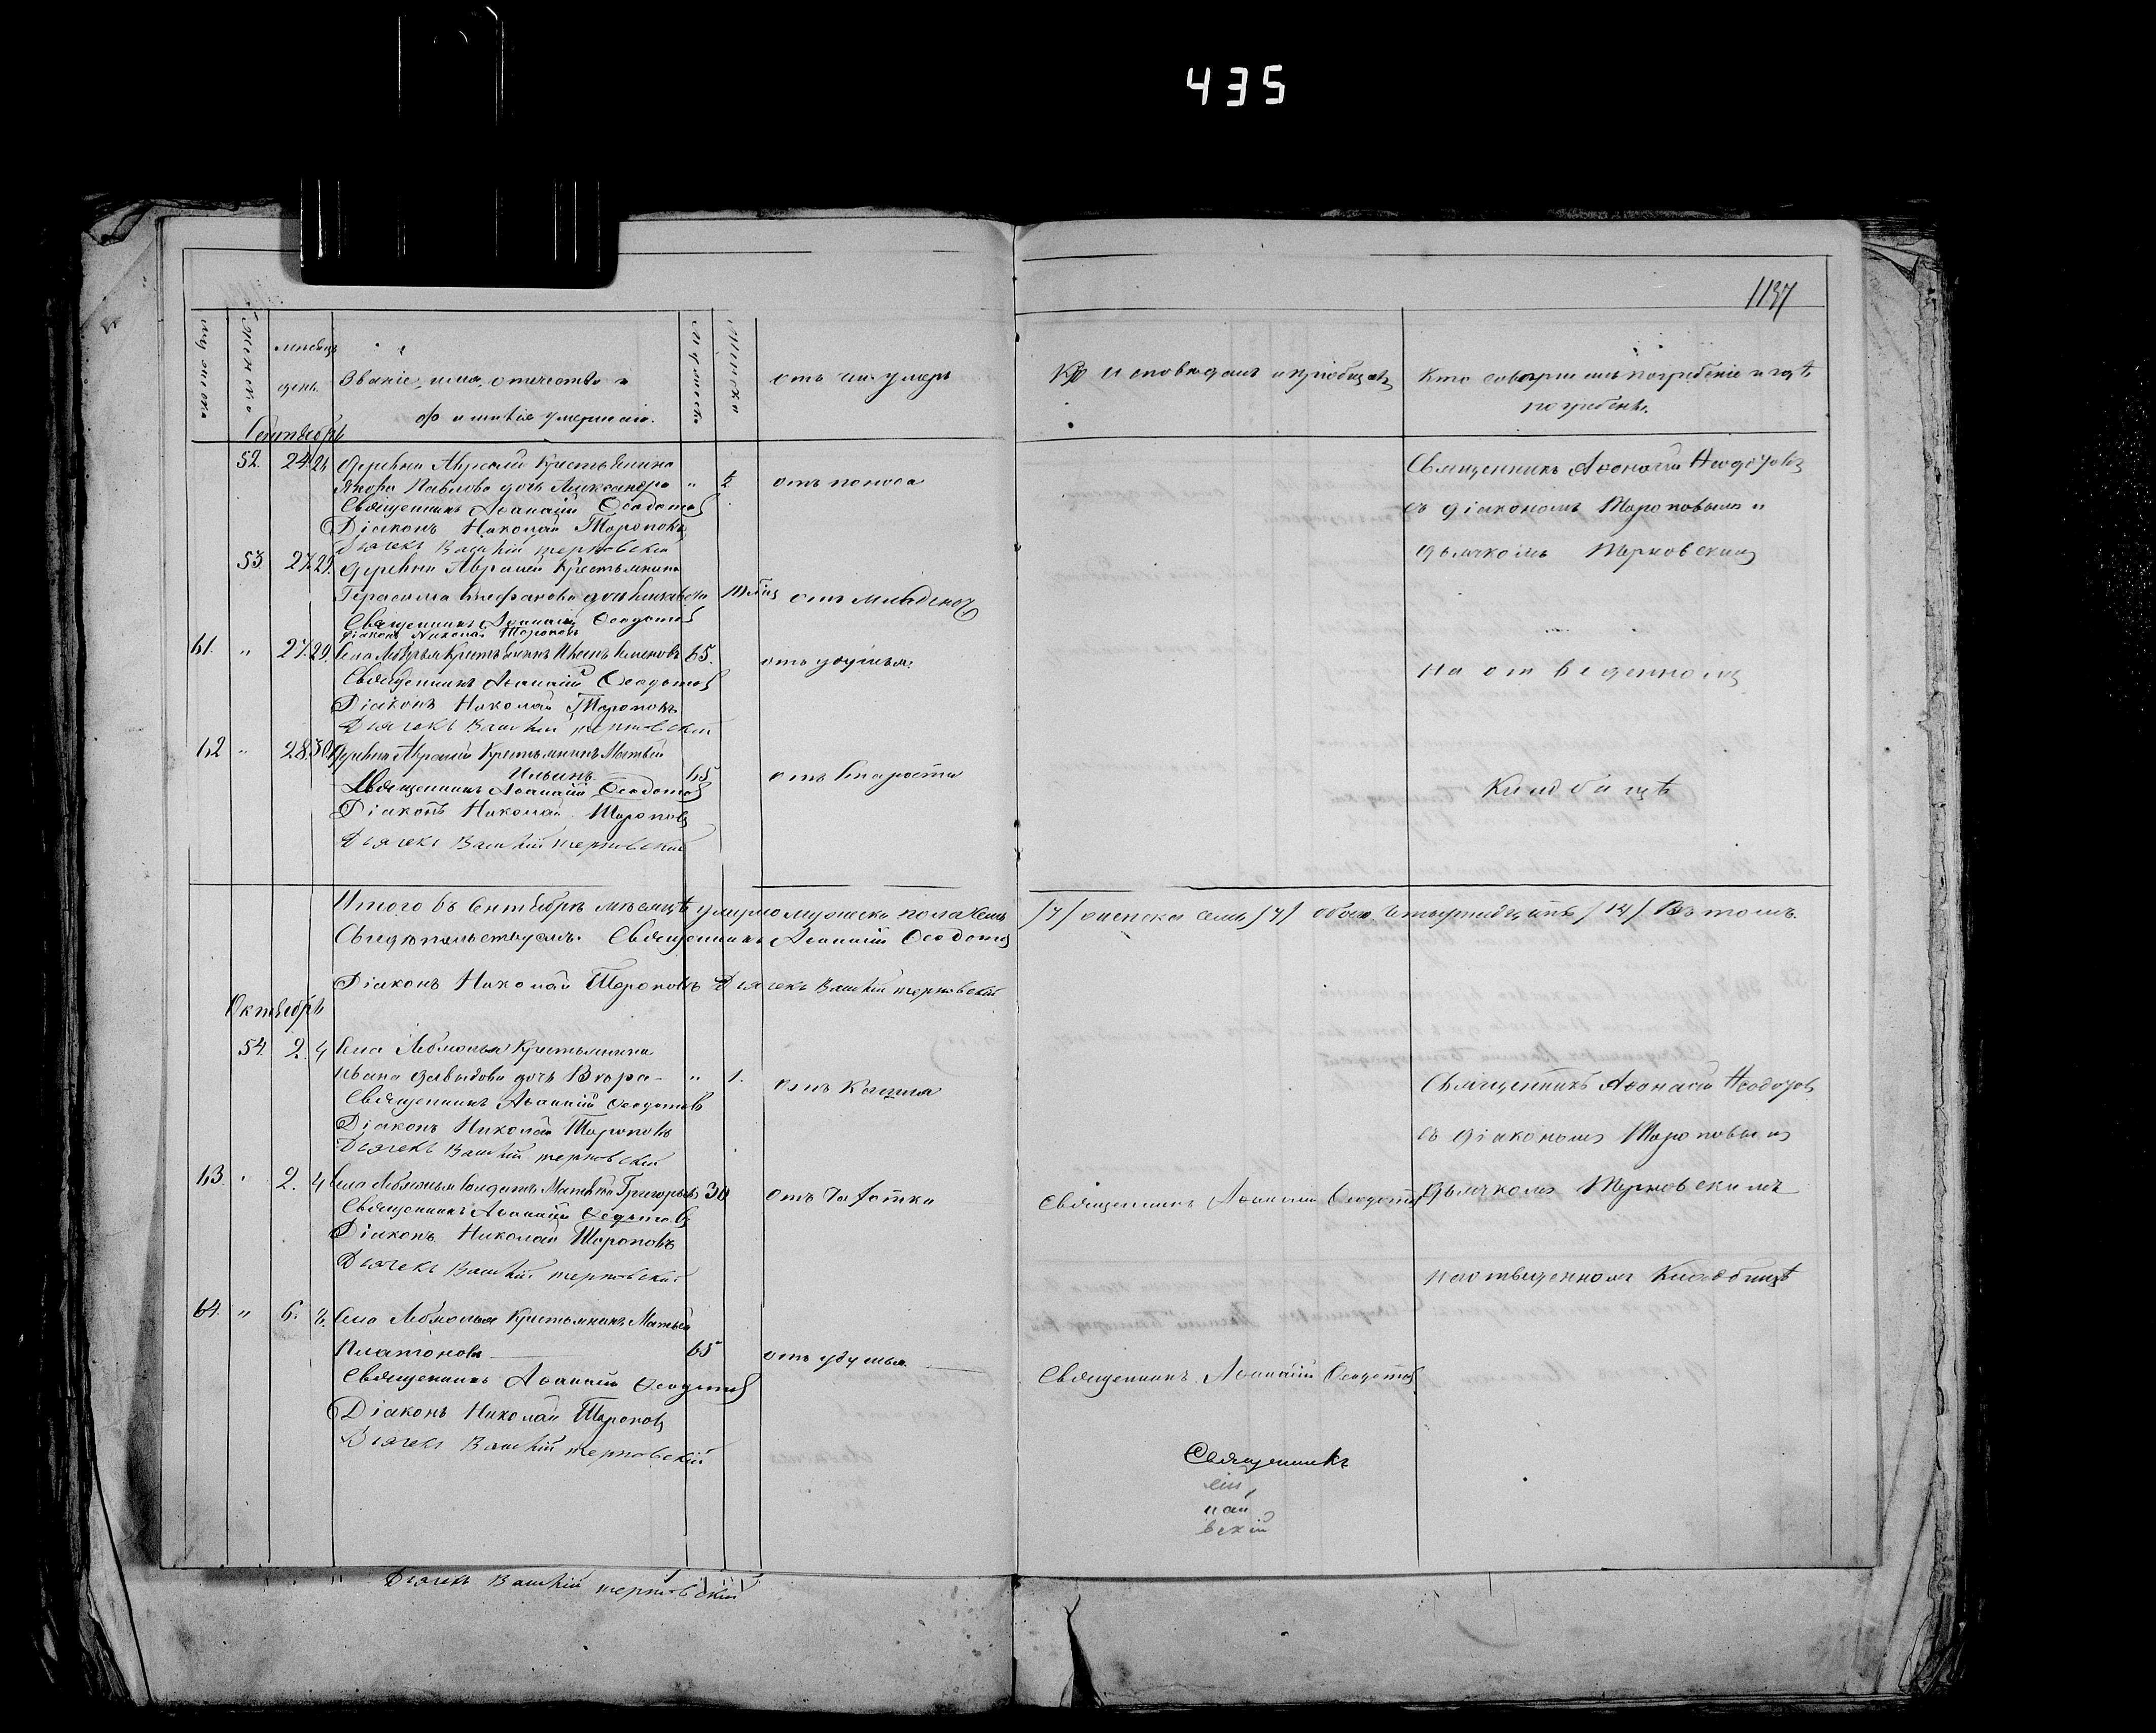 435
1137
мужеска
женска
мѣсяцъ
день
Званіе, имя, отчество и
фамилія умершаго.
Мужеска
Женска
отъ чего умеръ
Кто исповѣдалъ и пріобщалъ
Кто совершилъ погребеніе и гдѣ
погребенъ.
Сентябрь
52. 24 26 деревни Авралей Крестьянина
Якова Павлова дочь Александра " ½ отъ поноса
Священникъ Аѳанасій Ѳеодотовъ
Діаконъ Николай Тороповъ
Дьячекъ Василій Терновскій
53. 27. 29. деревни Авралей Крестьянина
Герасима Стефанова дочь отъ младенч
Священникъ Аѳанасій Ѳеодотовъ
Діаконъ Николай Тороповъ
61. " 27. 29. Села Крестьянинъ 65. отъ удушья.
Священникъ Аѳанасій Ѳеодотовъ
Діаконъ Николай Тороповъ
Дьячекъ Василій Терновскій
62 " 28. 30. деревни Авралей Крестьянинъ Матвей
Ильинъ 65 отъ Старости
Священникъ Аѳанасій Ѳеодотовъ
Діаконъ Николай Тороповъ
Дьячекъ Василій Терновскій
Священникъ Аѳонасій Ѳеодотовъ
съ діакономъ Тороповымъ и
дьячкомъ Терновскимъ
На отведенномъ
Кладбищѣ
Итого въ Сентябрѣ мѣсяцѣ умерло мужеска пола Семь /7/ женска семь /7/ обоего четырнадцать /14/ Въ томъ.
Свидѣтельствуемъ. Священникъ Аѳанасій Ѳеодотовъ
Діаконъ Николай Тороповъ Дьячекъ Василій Терновскій
Октябрь
54. 2. 4 Села Крестьянина
Ивана Давыдова дочь Вѣра " 1. отъ Кашля
Священникъ Аѳанасій Ѳеодотовъ
Діаконъ Николай Тороповъ
Дьячекъ Василій Терновскій
63. " 2. 4 Села Солдатъ Матвей Григорьевъ 30 отъ Чахотки Священникъ Аѳанасій Ѳеодотовъ
Священникъ Аѳанасій Ѳеодотовъ
Діаконъ Николай Тороповъ
Дьячекъ Василій Терновскій
64. " 6. 8. Села Крестьянинъ Матвей
Платоновъ 65 отъ удушья. Священникъ Аѳанасій Ѳеодотовъ
Священникъ Аѳанасій Ѳеодотовъ
Діаконъ Николай Тороповъ
Дьячекъ Василій Терновскій
Священникъ Аѳонасій Ѳеодотовъ
съ діакономъ Тороповымъ
Дьячкомъ Терновскимъ
на отведенномъ Кладбищѣ
Священникъ
сій
лай
вскій
Дьячекъ Василій Терновскій